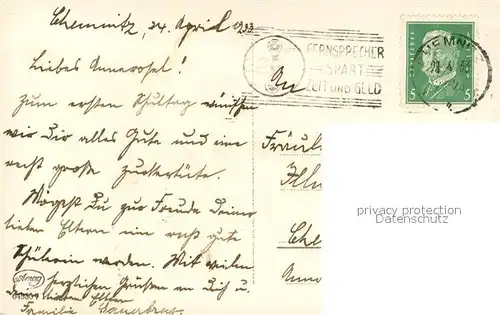 Chemnitz, 24. April 1933
Liebes Annerosel!
Zum ersten Schultag wünschen
wir Dir alles Gute und eine
recht große Zuckertüte.
Mögest Du zur Freude Deiner
lieben Eltern ein recht gute
Schülerin werden. Mit vielen
herzlichen Grüßen an Dich u.
Deine lieben Eltern
Familie
FERNSPRECHER
SPART
ZEIT UND GELD
CHEMNITZ
5 5
An
Fräul
Che
Anna
privacy protection
Amag